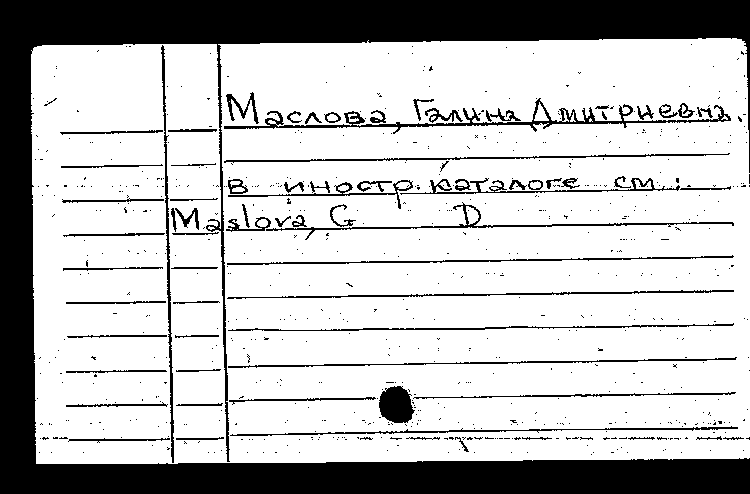 Маслова, Галина Дмитриевна.
в иностр. каталоге см:
Maslova, G D